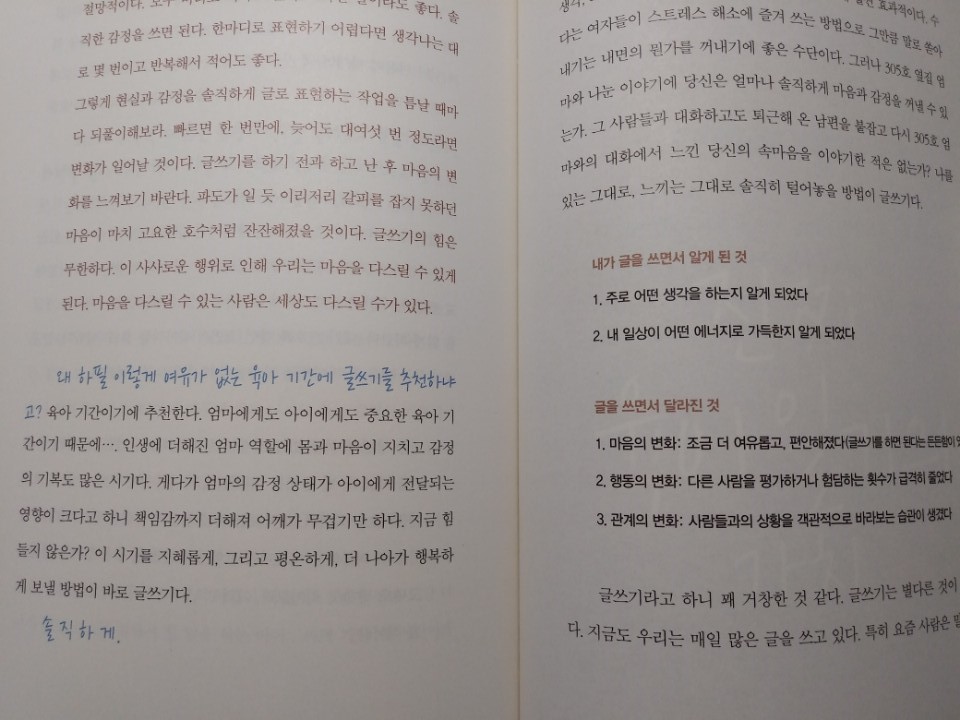 직한 감정을 쓰면 된다. 한마디로 표현하기 어렵다면 생각나는 대
로 몇 번이고 반복해서 적어도 좋다.
그렇게 현실과 감정을 솔직하게 글로 표현하는 작업을 틈날 때마
다 되풀이해보라. 빠르면 한 번만에, 늦어도 대여섯 번 정도라면
변화가 일어날 것이다. 글쓰기를 하기 전과 하고 난 후 마음의 변
화를 느껴보기 바란다. 파도가 일 듯 이리저리 갈피를 잡지 못하던
마음이 마치 고요한 호수처럼 잔잔해졌을 것이다. 글쓰기의 힘은
무한하다. 이 사사로운 행위로 인해 우리는 마음을 다스릴 수 있게
된다. 마음을 다스릴 수 있는 사람은 세상도 다스릴 수가 있다.
왜 하필 이렇게 여유가 없는 육아 기간에 글쓰기를 추천하냐
고? 육아 기간이기에 추천한다. 엄마에게도 아이에게도 중요한 육아 기
간이기 때문에…. 인생에 더해진 엄마 역할에 몸과 마음이 지치고 감정
의 기복도 많은 시기다. 게다가 엄마의 감정 상태가 아이에게 전달되는
영향이 크다고 하니 책임감까지 더해져 어깨가 무겁기만 하다. 지금 힘
들지 않은가? 이 시기를 지혜롭게, 그리고 평온하게, 더 나아가 행복하
게 보낼 방법이 바로 글쓰기다.
솔직하게.
다는 여자들이 스트레스 해소에 즐겨 쓰는 방법으로 그만큼 말로 쏟아
내기는 내면의 뭔가를 꺼내기에 좋은 수단이다. 그러나 305호 옆집 엄
마와 나눈 이야기에 당신은 얼마나 솔직하게 마음과 감정을 꺼낼 수 있
는가. 그 사람들과 대화하고도 퇴근해 온 남편을 붙잡고 다시 305호 엄
마와의 대화에서 느낀 당신의 속마음을 이야기한 적은 없는가? 나를
있는 그대로, 느끼는 그대로 솔직히 털어놓을 방법이 글쓰기다.
내가 글을 쓰면서 알게 된 것
1. 주로 어떤 생각을 하는지 알게 되었다
2. 내 일상이 어떤 에너지로 가득한지 알게 되었다
글을 쓰면서 달라진 것
1. 마음의 변화: 조금 더 여유롭고, 편안해졌다(글쓰기를 하면 된다는 든든함이
2. 행동의 변화: 다른 사람을 평가하거나 험담하는 횟수가 급격히 줄었다
3. 관계의 변화: 사람들과의 상황을 객관적으로 바라보는 습관이 생겼다
글쓰기라고 하니 꽤 거창한 것 같다. 글쓰기는 별다른 것이
다. 지금도 우리는 매일 많은 글을 쓰고 있다. 특히 요즘 사람은